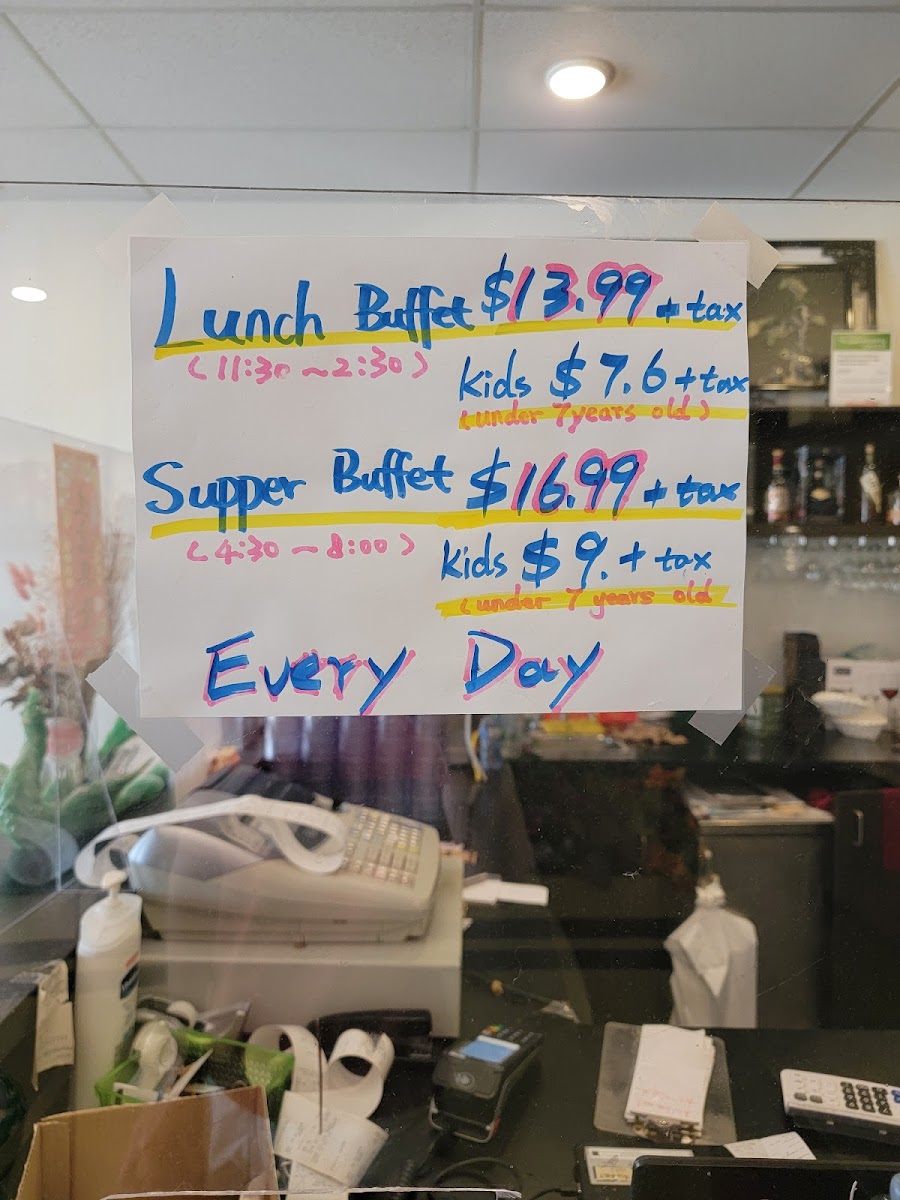 Lunch Buffet $13.99 + tax
(11:30 ~ 2:30)
kids $7.6 + tax
(under 7 years old)
Supper Buffet $16.99 + tax
(4:30 ~ 8:00)
kids $9. + tax
(under 7 years old
Every Day